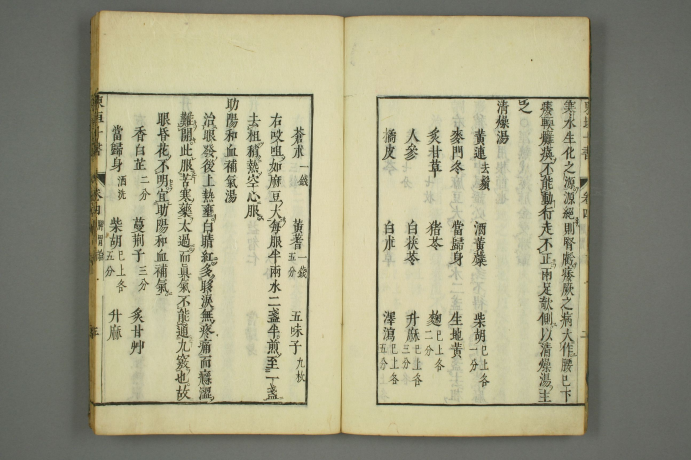 東垣十書 卷四
寒水生化之源源絕則腎虧痿厥之病大作腰已下
痿軟癱瘓不能動行走不正兩足欹側以清燥湯主
之
清燥湯
黃連去鬚 酒黃蘗 柴胡已上各一分
麥門冬 當歸身 生地黃
炙甘草 猪苓 麴已上各二分
人參 白茯苓 升麻已上各三分
橘皮 白朮 澤瀉已上各五分
蒼朮一錢 黃蓍一錢五分 五味子九枚
右㕮咀如麻豆大每服半兩水二盞半煎至一盞
去柤稍熱空心服
助陽和血補氣湯
治眼發後上熱壅白睛紅多眵淚無疼痛而癮澀
難開此服苦寒藥太過而眞氣不能通九竅也故
眼昏花不明宜助陽和血補氣
香白芷二分 蔓荆子三分 炙甘艸
當歸身酒洗 柴胡已上各 升麻
東垣十書 卷四